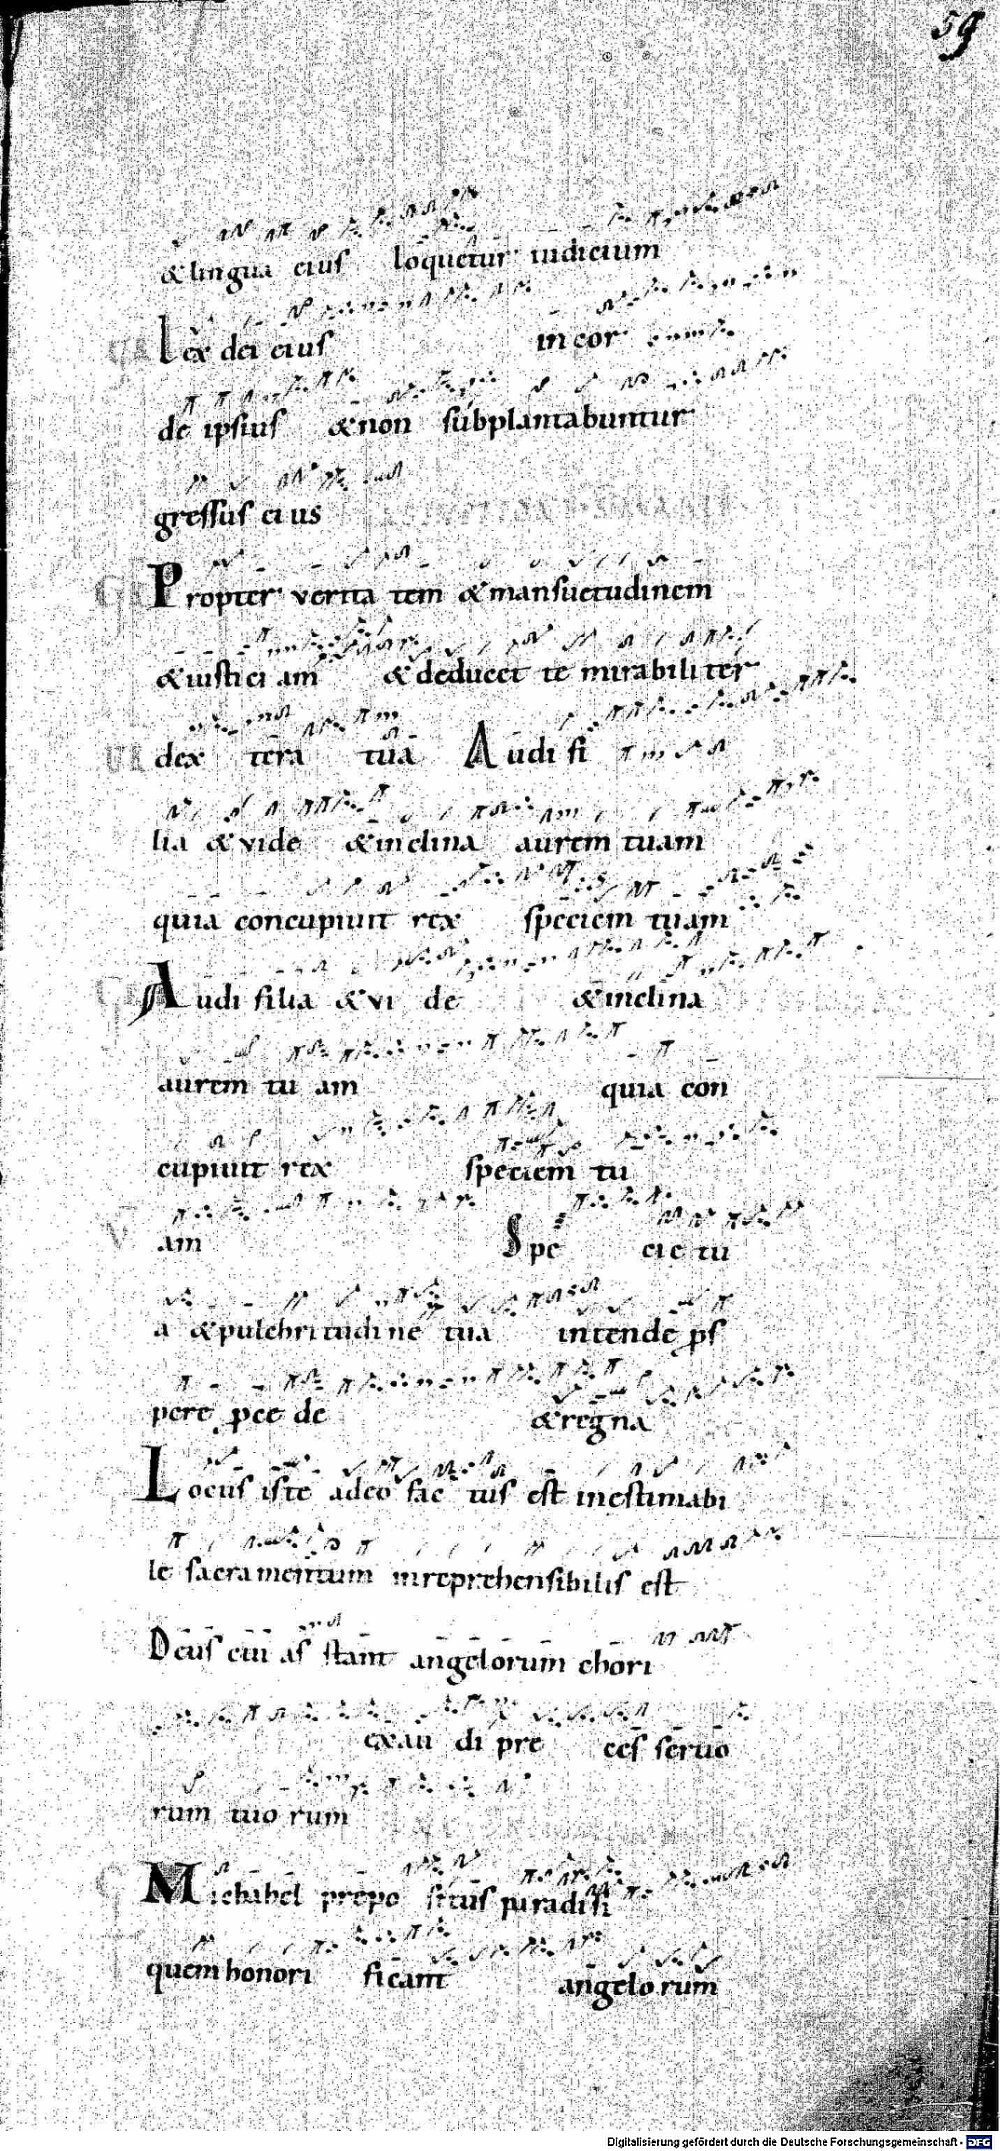 59
& lingua eius loquetur iudicium
Lex dei eius in cor
de ipsius & non subplantabuntur
gressus eius
Propter veritatem & mansuetudinem
& iusticiam & deducet te mirabiliter
dextera tua Audi fi
lia & vide & inclina aurem tuam
quia concupiuit rex speciem tuam
Audi filia & vide & inclina
aurem tuam quia con
cupiuit rex speciem tu
am Specie tu
a & pulchritudine tua intende ps
pere pcede & regna
Locus iste adeo factus est inestimabi
le sacramentum inreprehensibilis est
Deus cui astant angelorum chori
exaudi preces seruo
rum tuorum
Michahel prepositus paradisi
quem honorificant angelorum
Digitalisierung gefördert durch die Deutsche Forschungsgemeinschaft - DFG